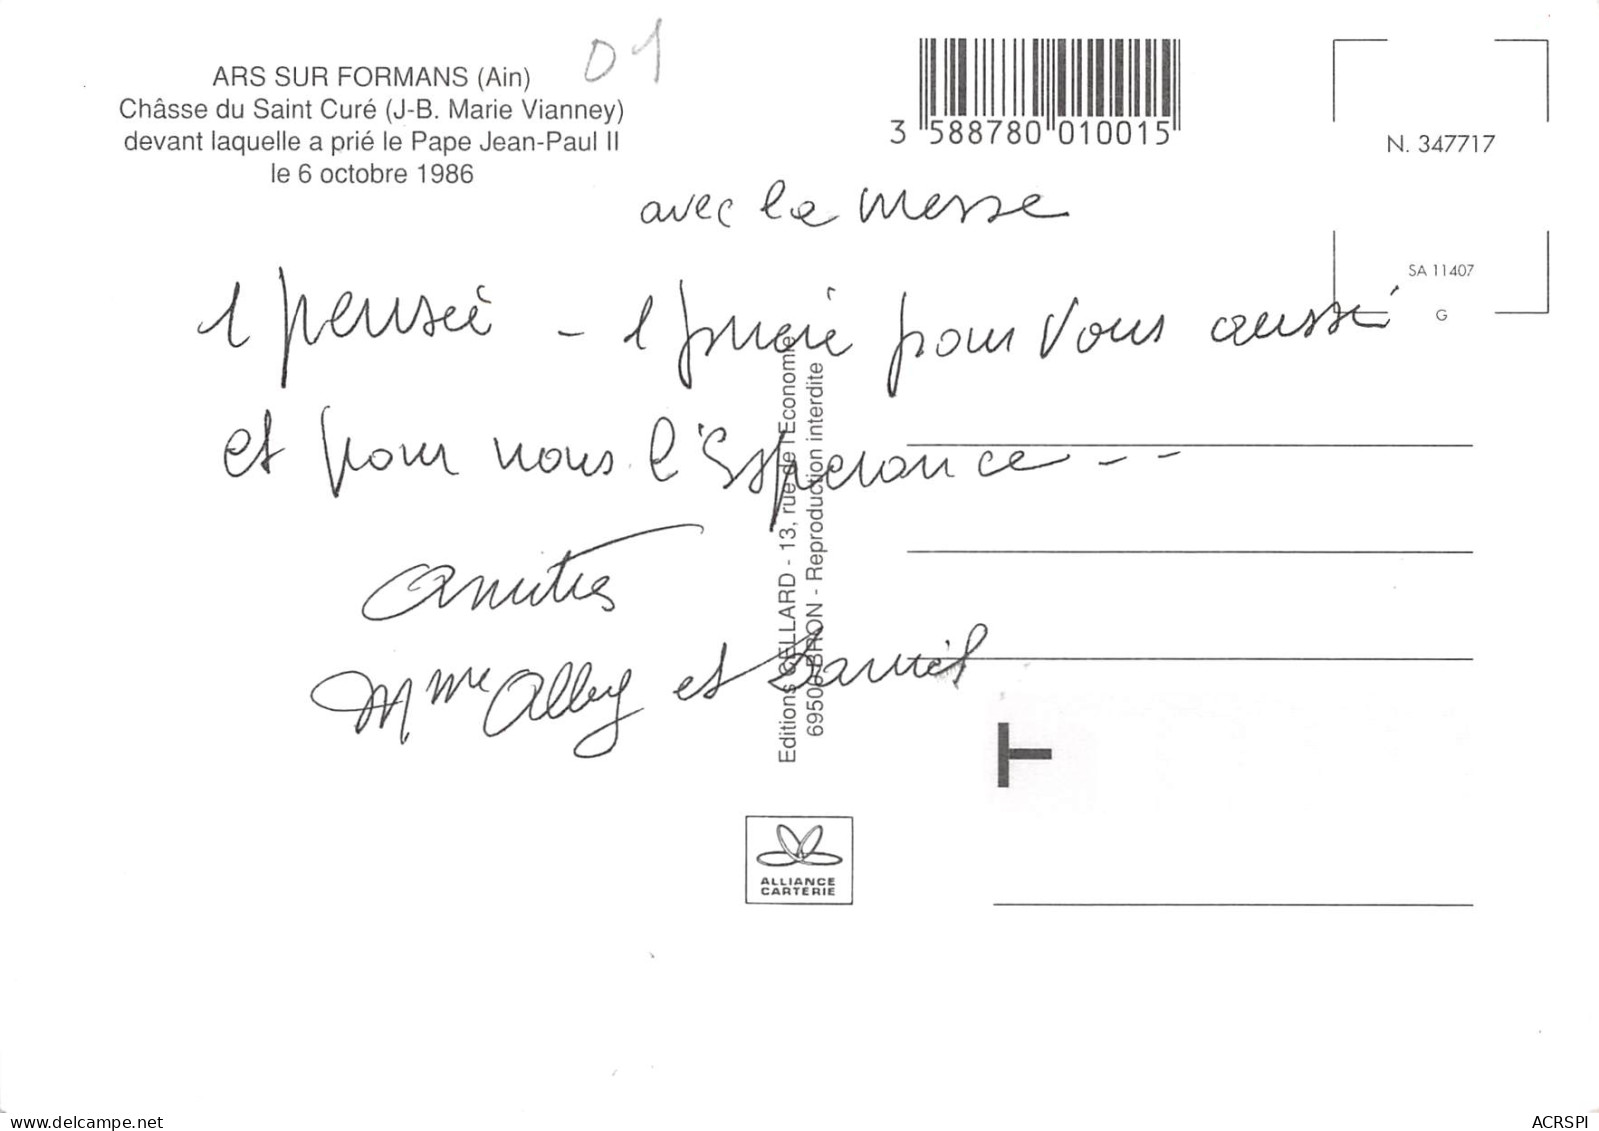 01
ARS SUR FORMANS (Ain)
Châsse du Saint Curé (J-B. Marie Vianney)
devant laquelle a prié le Pape Jean-Paul II
le 6 octobre 1986
3 588780 010015
N. 347717
SA 11407
G
avec la messe
1 pensée - 1 prière pour vous aussi
et pour nous l'Espérance - -
Amitiés
Mme Alby et Daniel
Editions GELLARD - 13, rue de l'Economie
69500 BRON - Reproduction interdite
T
ALLIANCE
CARTERIE
www.delcampe.net
ACRSPI